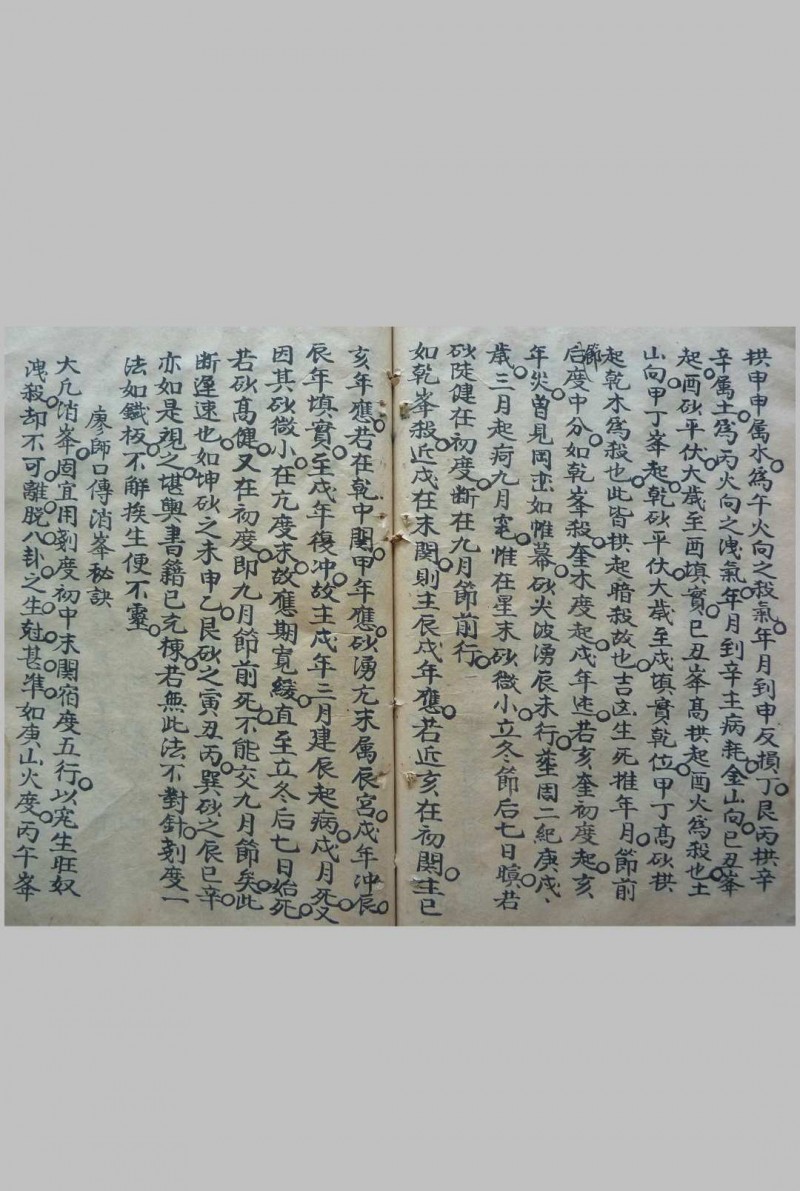 拱申申屬水為午火向之殺氣年月到申反損丁艮丙拱辛
辛屬土為丙火向之洩氣年月到辛主病耗金山向巳丑峯
起酉砂平伏大歲至酉填實巳丑峯高拱起酉火為殺也土
山向甲丁峯起乾砂平伏大歲至戌填實乾位甲丁高砂拱
起乾木為殺也此皆拱起暗殺故也吉凶生死推年月節前
節后度中分如乾峯殺奎木度起戌年迍若亥奎初度起亥
年災曽見岡巒如帷幕砂尖波湧辰未行塟周二紀庚戌
歲三月起疴九月窀惟在星末砂微小立冬節后七日瞋若
砂陡健在初度斷在九月節前行
如乾峯殺近戌在末関則主辰戌年應若近亥在初関主巳
亥年應若在乾中関甲年應砂湧亢末属辰宮戌年沖辰
辰年填實至戌年復冲故主戌年三月建辰起病戌月死又
因其砂微小在亢度末故應期寬緩直至立冬后七日始死
若砂髙健又在初度即九月節前死不能交九月節矣此
断遲速也如坤砂之未申乙艮砂之寅丑丙巽砂之辰巳辛
亦如是視之堪輿書籍已充棟若無此法不對針刻度一
法如鐵板不解挨生便不靈
廖師口傳消峯秘訣
大凡消峯固宜用刻度初中末関宿度五行以定生旺奴
洩殺却不可離脱八卦之生尅甚準如庚山火度丙午峯